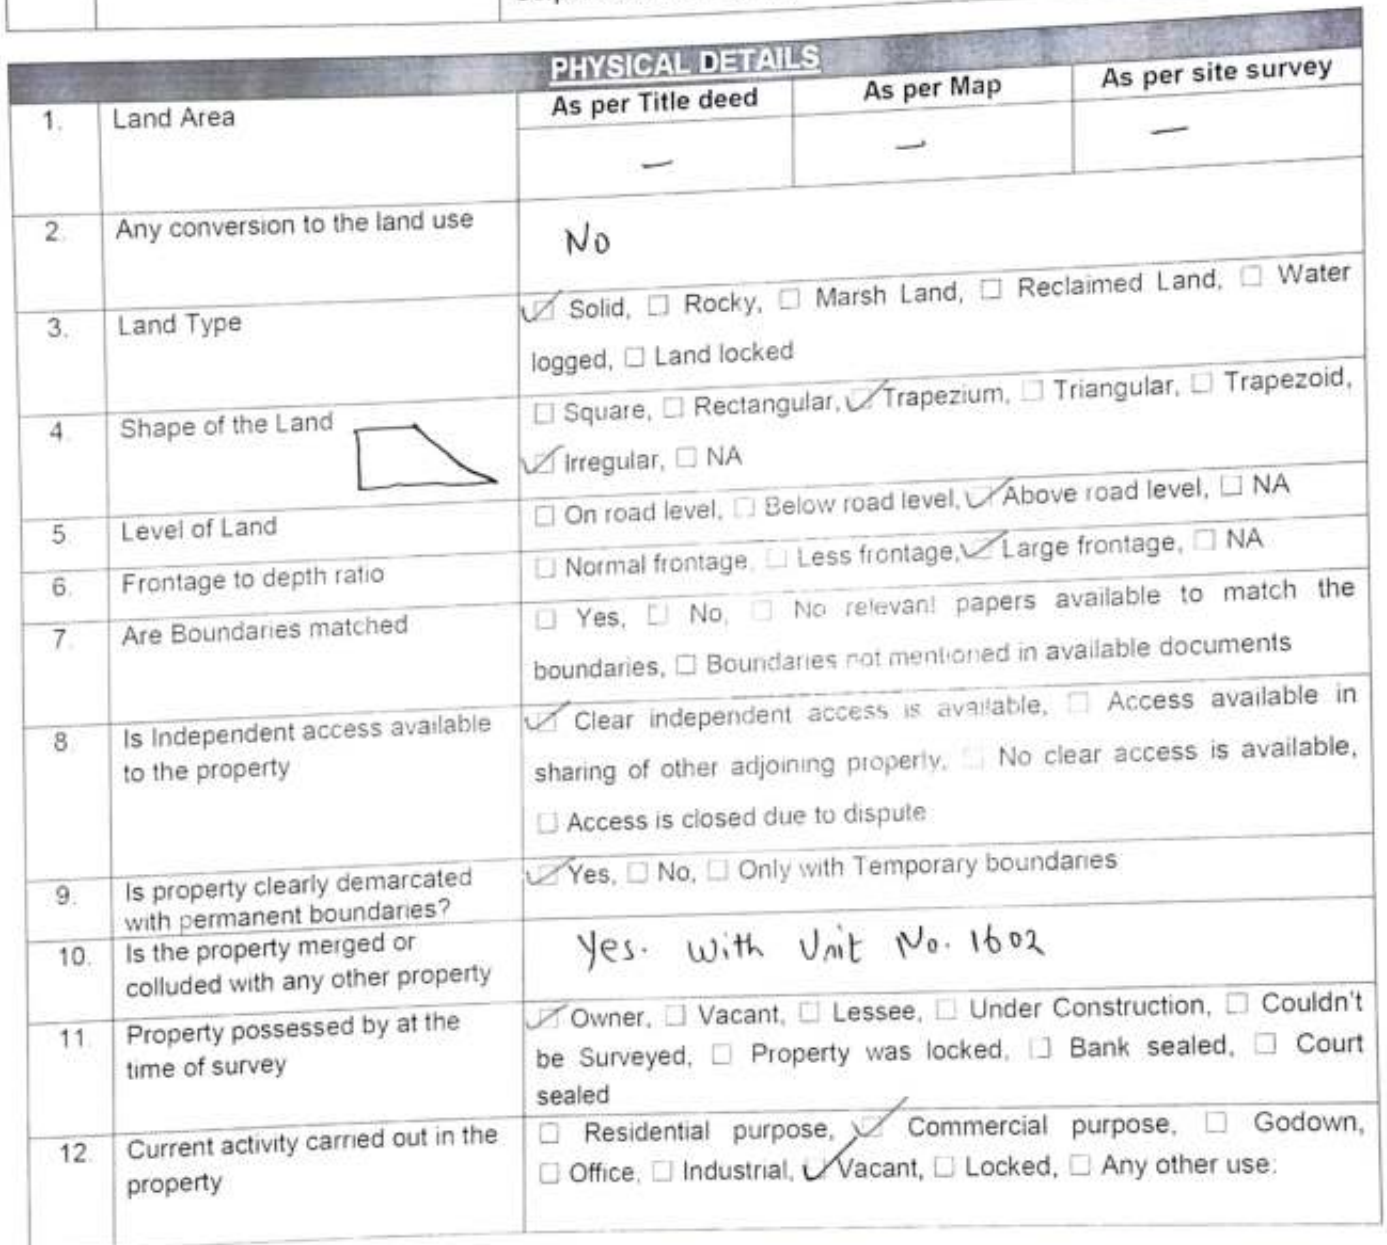 PHYSICAL DETAILS
1. Land Area As per Title deed As per Map As per site survey
— — —
2. Any conversion to the land use No
3. Land Type ☑ Solid, ☐ Rocky, ☐ Marsh Land, ☐ Reclaimed Land, ☐ Water
logged, ☐ Land locked
4. Shape of the Land ☐ Square, ☐ Rectangular, ☑ Trapezium, ☐ Triangular, ☐ Trapezoid,
☑ Irregular, ☐ NA
5. Level of Land ☐ On road level, ☐ Below road level, ☑ Above road level, ☐ NA
6. Frontage to depth ratio ☐ Normal frontage, ☐ Less frontage, ☑ Large frontage, ☐ NA
7. Are Boundaries matched ☐ Yes, ☐ No, ☐ No relevant papers available to match the
boundaries, ☐ Boundaries not mentioned in available documents
8. Is Independent access available
to the property
☑ Clear independent access is available, ☐ Access available in
sharing of other adjoining property, ☐ No clear access is available,
☐ Access is closed due to dispute
9. Is property clearly demarcated
with permanent boundaries?
☑ Yes, ☐ No, ☐ Only with Temporary boundaries
10. Is the property merged or
colluded with any other property
Yes. With Unit No. 1602
11. Property possessed by at the
time of survey
☑ Owner, ☐ Vacant, ☐ Lessee, ☐ Under Construction, ☐ Couldn't
be Surveyed, ☐ Property was locked, ☐ Bank sealed, ☐ Court
sealed
12. Current activity carried out in the
property
☐ Residential purpose, ☑ Commercial purpose, ☐ Godown,
☐ Office, ☐ Industrial, ☑ Vacant, ☐ Locked, ☐ Any other use: